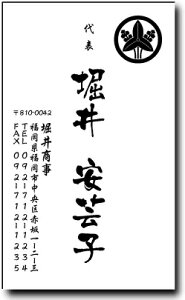 代表
堀井 安芸子
堀井商事
〒810-0042
福岡県福岡市中央区赤坂一-二-三
TEL 092-171-1234
FAX 092-171-1235